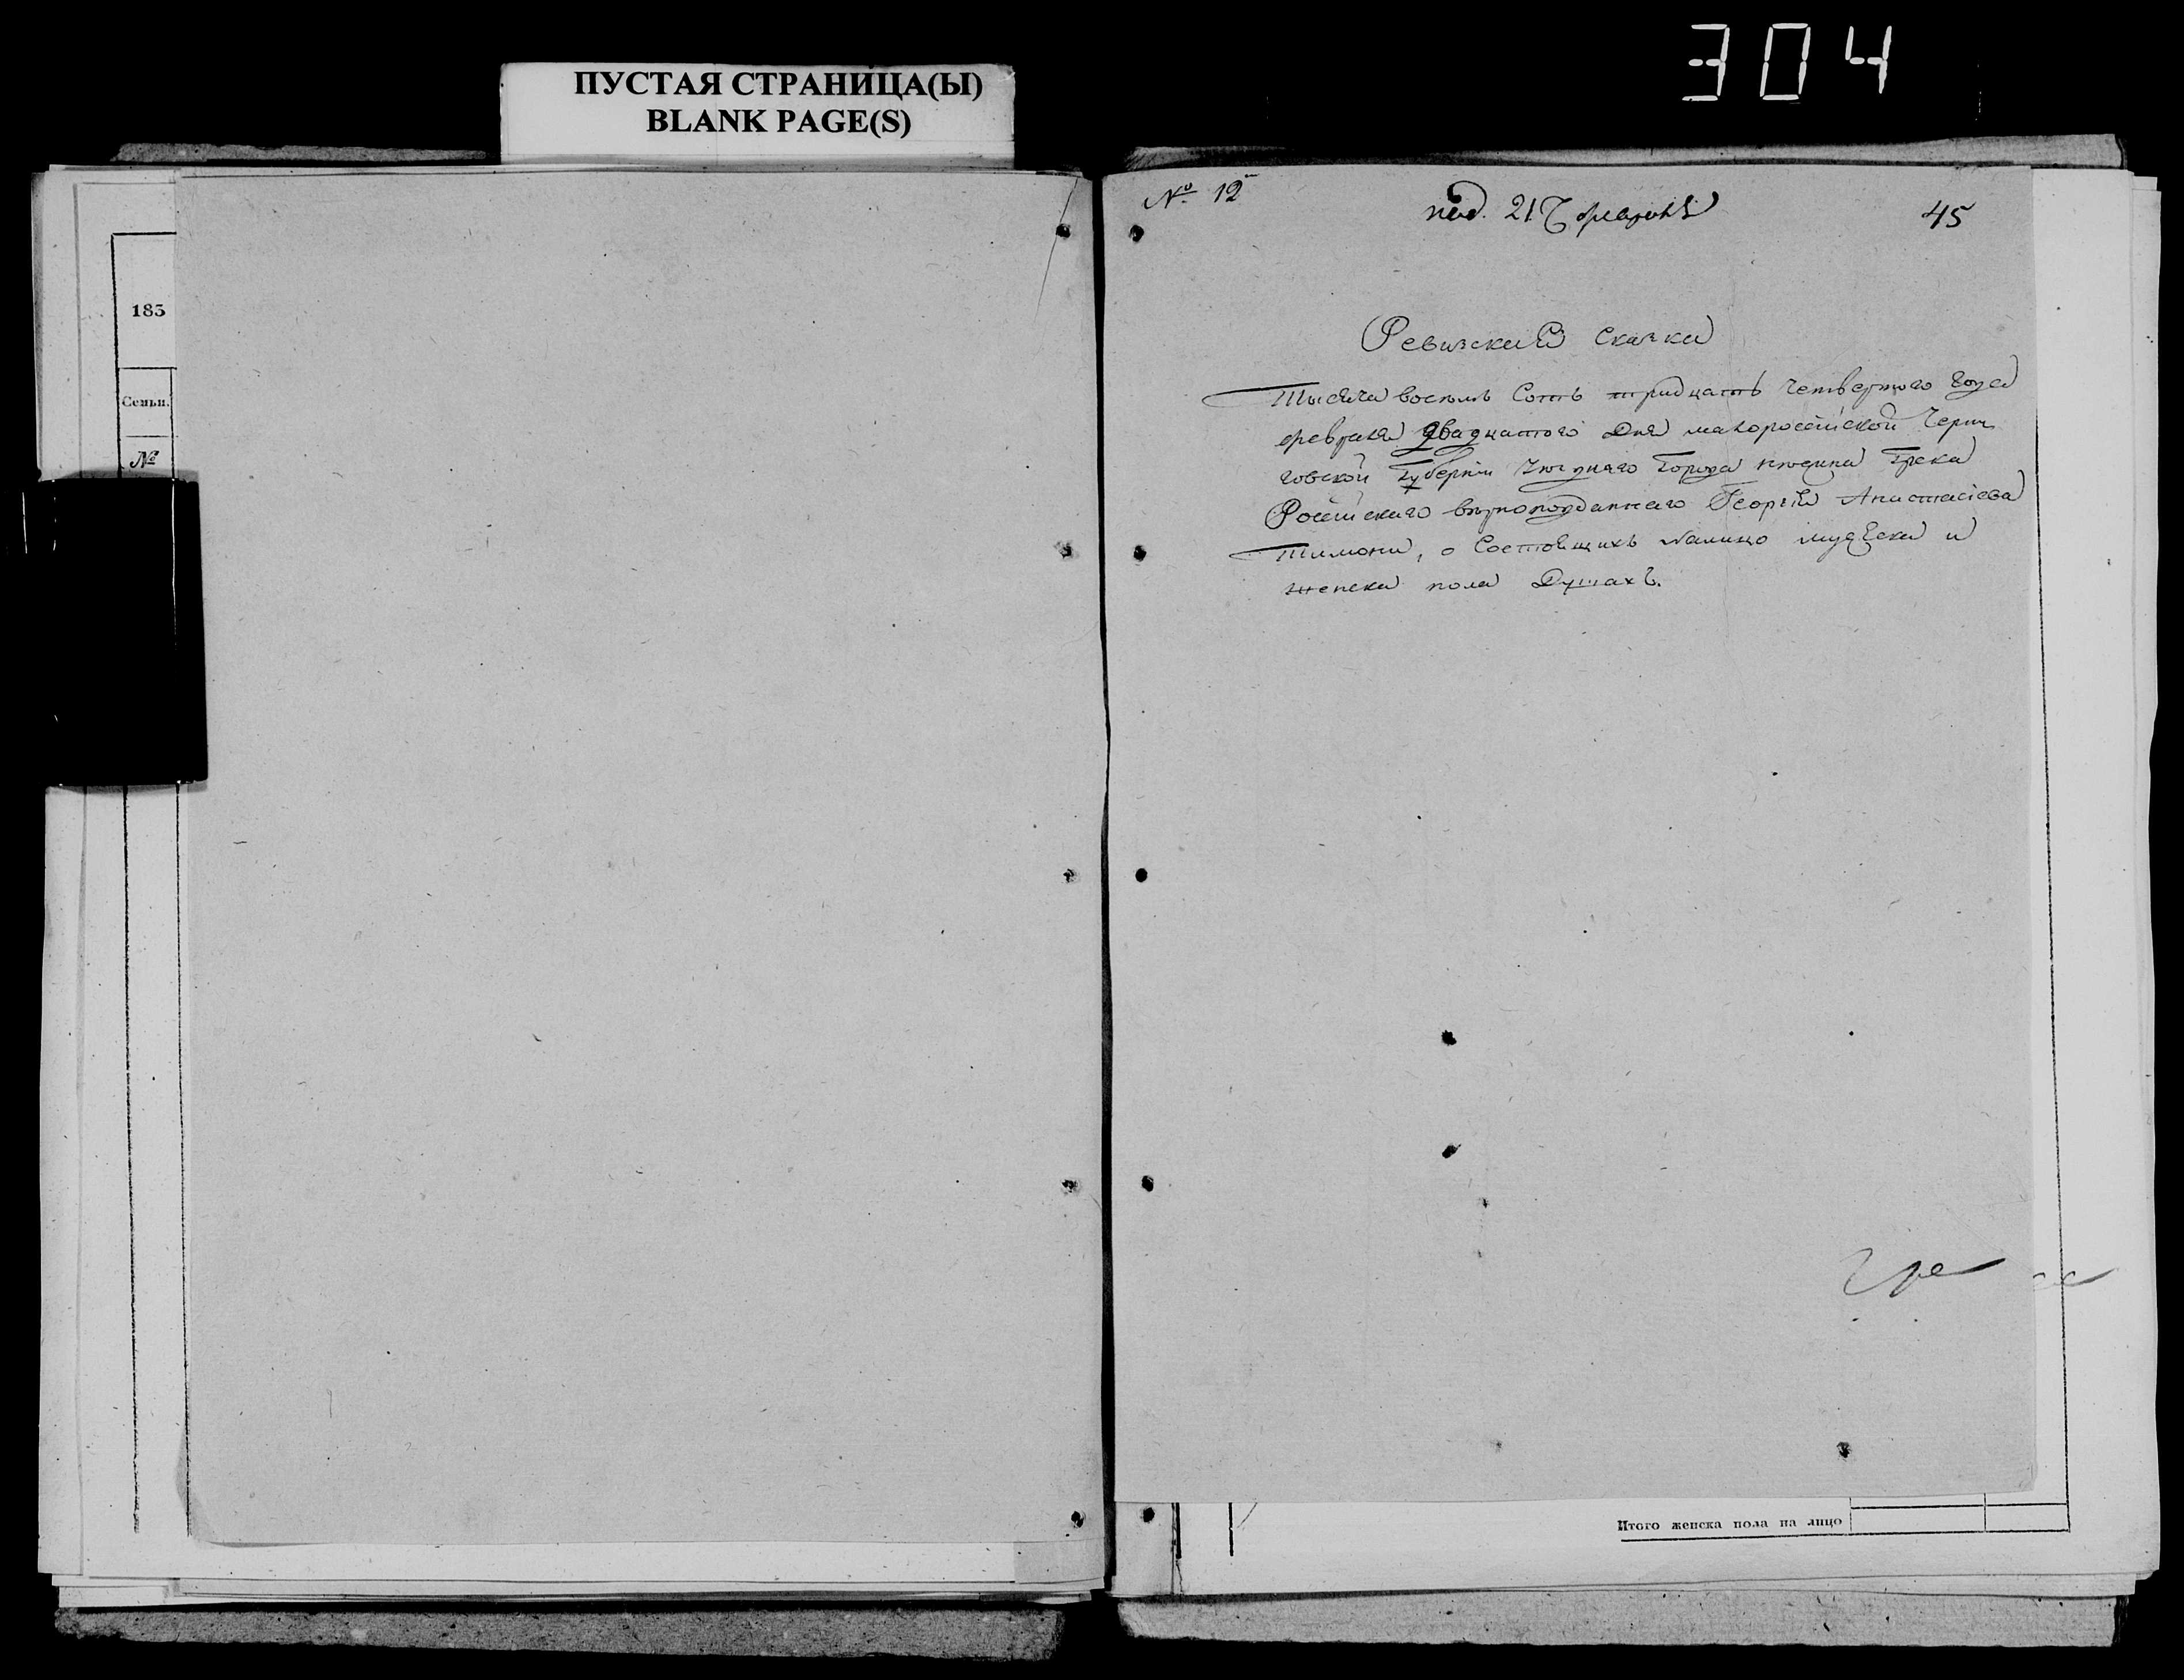 304
ПУСТАЯ СТРАНИЦА(Ы)
BLANK PAGE(S)
185
Семьи.
№
№ 12
под. 21 февраля
45
Ревизская Сказка
Тысяча восемь Сотъ тридцать четвертого года
февраля двадцатого Дня малороссійской Черни
говской Губерніи уезднаго города нежина Грека
Россійскаго вернопод­даннаго Георгія Анастасіева
Тимони, о Состоящихъ налицо мужеска и
женска пола Душахъ.
Итого женска пола на лицо